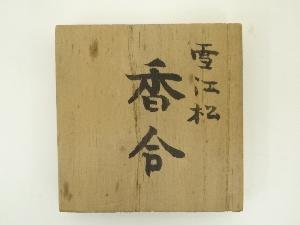 雪江松
香合